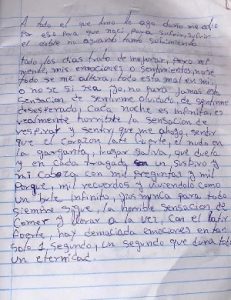 A todo el que amo le ago daño me odio
por eso para que nací para sufrir, sufrir
el estre no aguanto tanto sufrimiento
todo los dias trato de mejorar, pero mi
mente, mis emociones o sentimientos, no se
todo se me altera, todo esta mal en mi
o no se si sea yo, no para jamas esta
sensacion de sentirme olvidado, de sentirme
desesperado, cada noche es infinita, es
realmente turrible la sensacion de
respirar y sentir que me ahogo, sentir
que el corazon late fuerte, el nudo en
la garganta, tragar saliva que duela
y en cada tragada son un suspiro y
mi cabeza con mil preguntas y mil
porque, mil recuerdos y viviendolo como
un bucle infinito, nunca para todo
siempre sigue, la horrible sensacion de
comer y llorar a la vez con el latir
fuerte, hay demaciada emociones en tan
solo 1, segundo, un segundo que dura toda
un eternidad